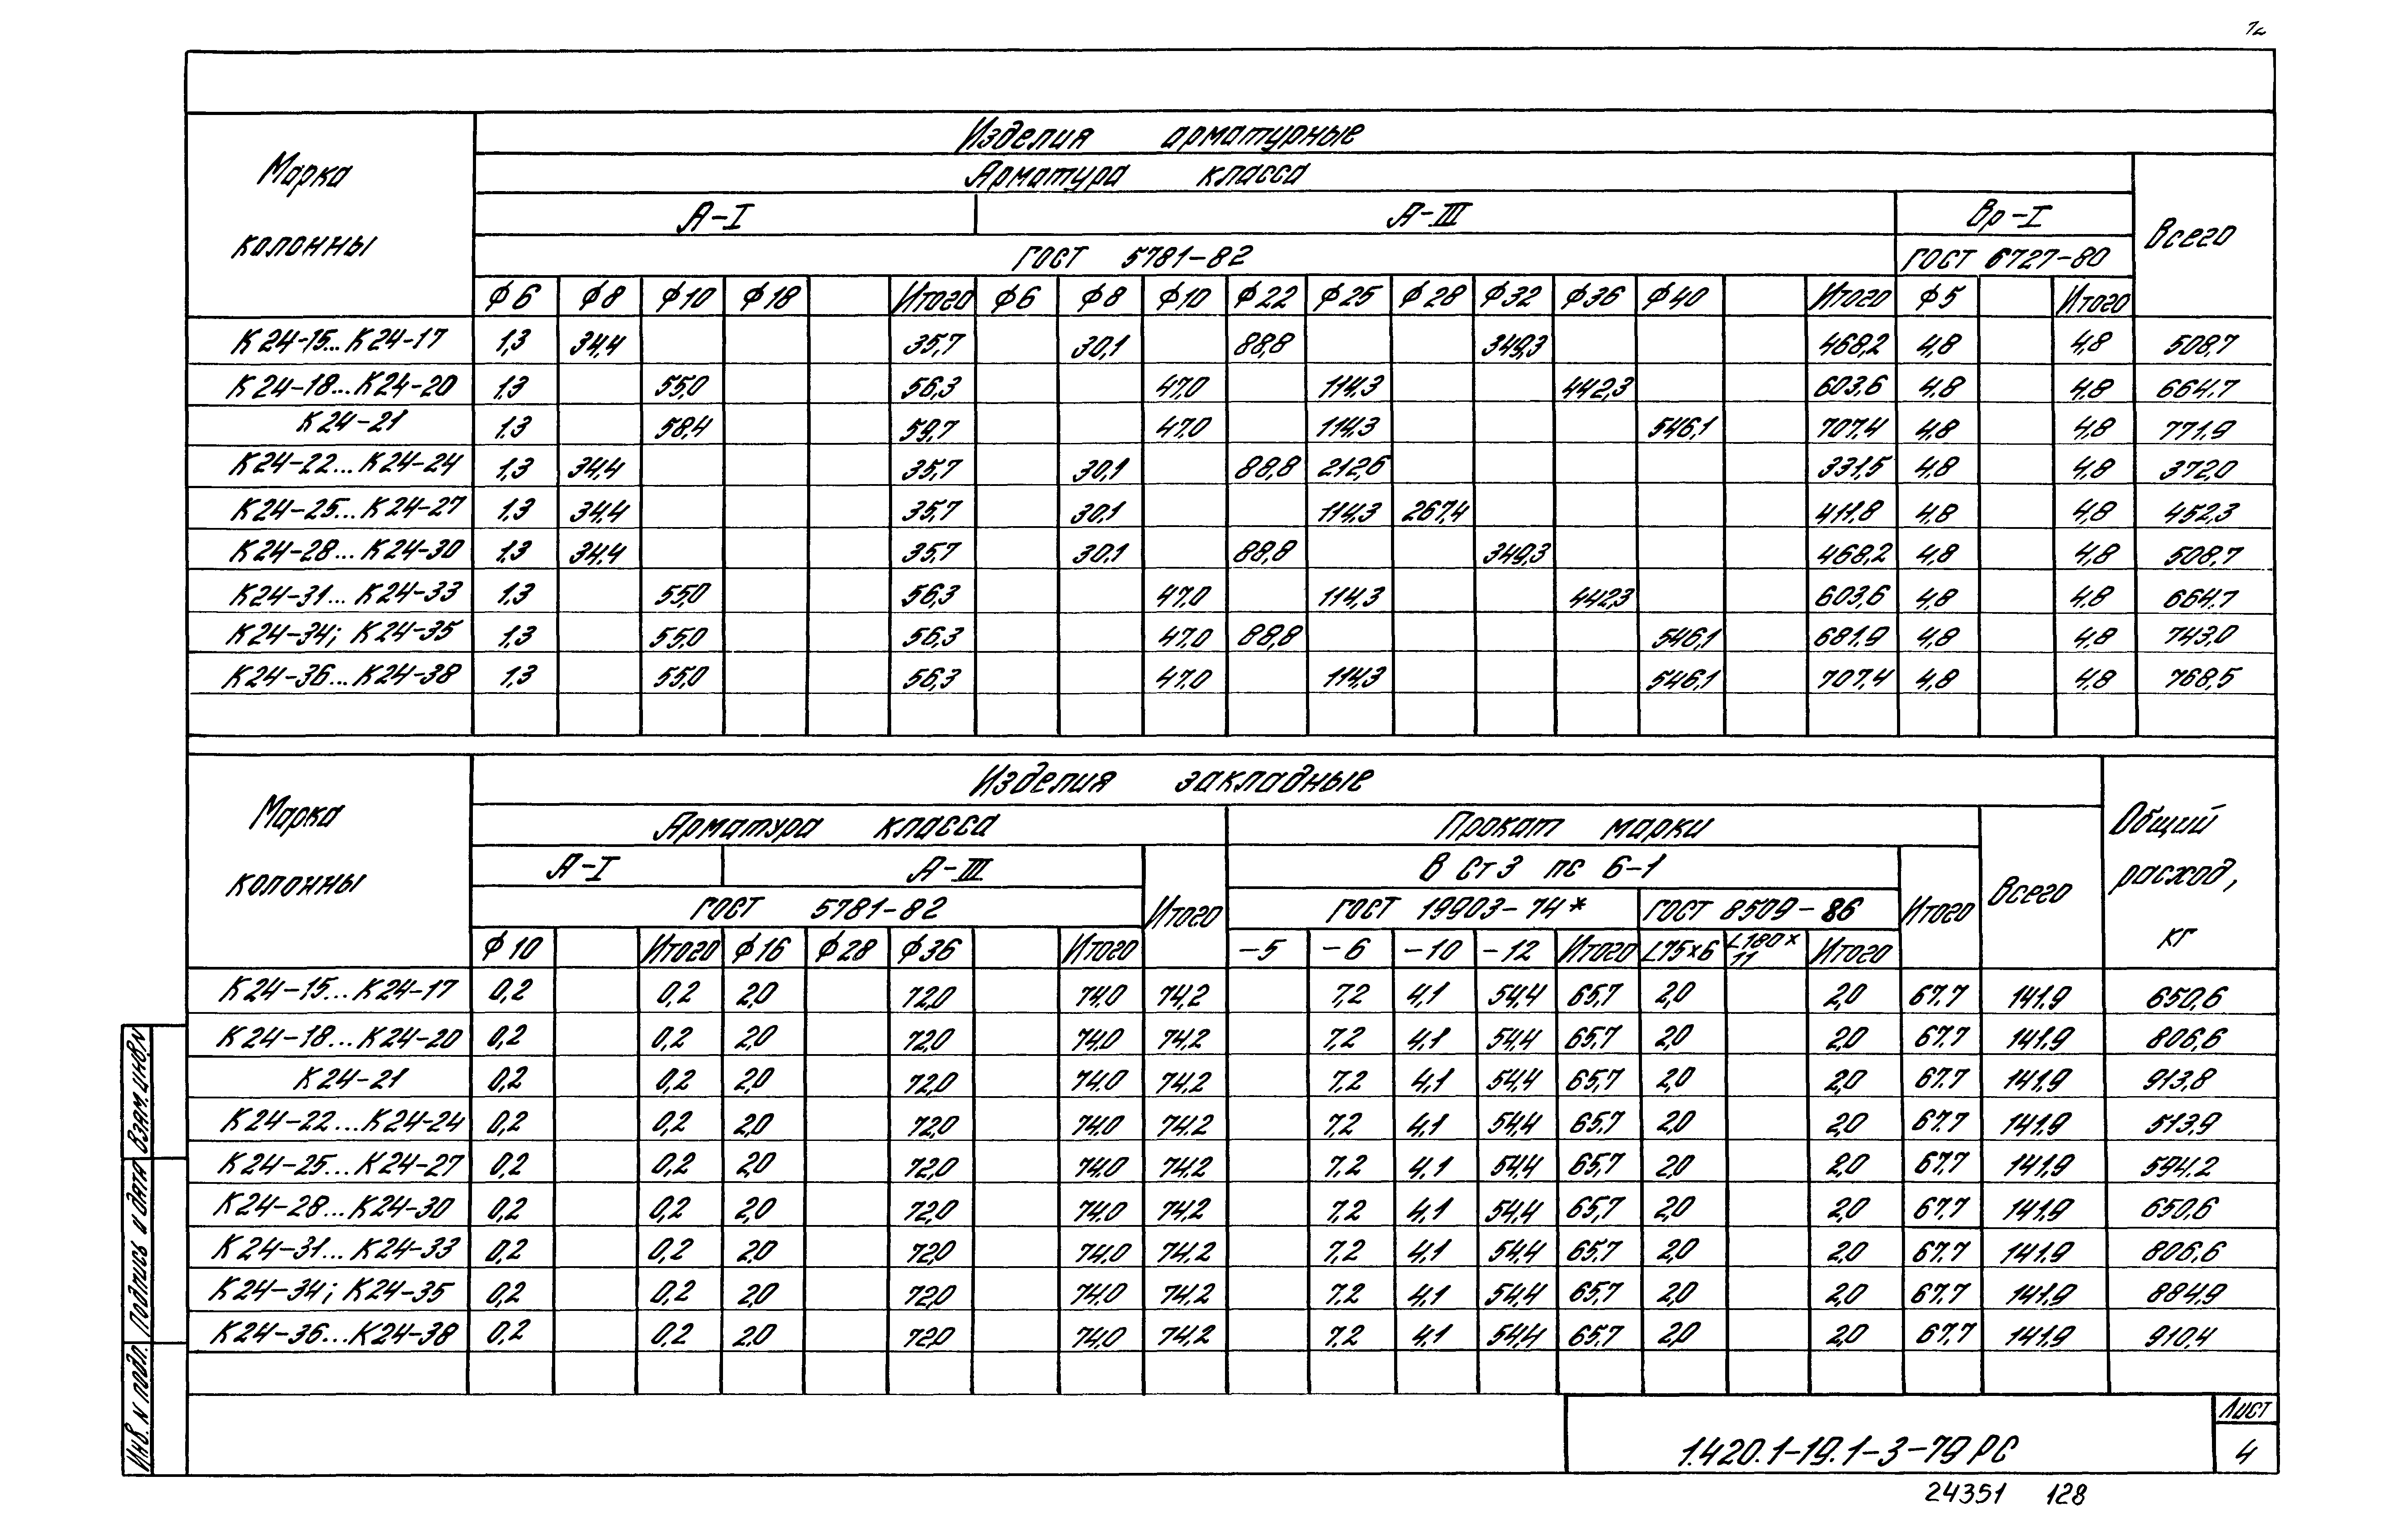 12
Изделия арматурные
Марка колонны
Арматура класса
Всего
А-I А-III Вр-I
ГОСТ 5781-82 ГОСТ 6727-80
ф6 ф8 ф10 ф18 Итого ф6 ф8 ф10 ф22 ф25 ф28 ф32 ф36 ф40 Итого ф5 Итого
К24-15...К24-17 1,3 34,4 35,7 30,1 88,8 349,3 468,2 4,8 4,8 508,7
К24-18...К24-20 1,3 55,0 56,3 47,0 114,3 442,3 603,6 4,8 4,8 664,7
К24-21 1,3 58,4 59,7 47,0 114,3 546,1 707,4 4,8 4,8 771,9
К24-22...К24-24 1,3 34,4 35,7 30,1 88,8 212,6 331,5 4,8 4,8 372,0
К24-25...К24-27 1,3 34,4 35,7 30,1 114,3 267,4 411,8 4,8 4,8 452,3
К24-28...К24-30 1,3 34,4 35,7 30,1 88,8 349,3 468,2 4,8 4,8 508,7
К24-31...К24-33 1,3 55,0 56,3 47,0 114,3 442,3 603,6 4,8 4,8 664,7
К24-34; К24-35 1,3 55,0 56,3 47,0 88,8 546,1 681,9 4,8 4,8 743,0
К24-36...К24-38 1,3 55,0 56,3 47,0 114,3 546,1 707,4 4,8 4,8 768,5
Изделия закладные
Марка колонны
Арматура класса Прокат марки
Общий расход, кг
А-I А-III Итого В Ст3 пс 6-1 Итого Всего
ГОСТ 5781-82 ГОСТ 19903-74* ГОСТ 8509-86
ф10 Итого ф16 ф28 ф36 Итого -5 -6 -10 -12 Итого L75х6 L180х11 Итого
К24-15...К24-17 0,2 0,2 2,0 72,0 74,0 74,2 7,2 4,1 54,4 65,7 2,0 2,0 67,7 141,9 650,6
К24-18...К24-20 0,2 0,2 2,0 72,0 74,0 74,2 7,2 4,1 54,4 65,7 2,0 2,0 67,7 141,9 806,6
К24-21 0,2 0,2 2,0 72,0 74,0 74,2 7,2 4,1 54,4 65,7 2,0 2,0 67,7 141,9 913,8
К24-22...К24-24 0,2 0,2 2,0 72,0 74,0 74,2 7,2 4,1 54,4 65,7 2,0 2,0 67,7 141,9 513,9
К24-25...К24-27 0,2 0,2 2,0 72,0 74,0 74,2 7,2 4,1 54,4 65,7 2,0 2,0 67,7 141,9 594,2
К24-28...К24-30 0,2 0,2 2,0 72,0 74,0 74,2 7,2 4,1 54,4 65,7 2,0 2,0 67,7 141,9 650,6
К24-31...К24-33 0,2 0,2 2,0 72,0 74,0 74,2 7,2 4,1 54,4 65,7 2,0 2,0 67,7 141,9 806,6
К24-34; К24-35 0,2 0,2 2,0 72,0 74,0 74,2 7,2 4,1 54,4 65,7 2,0 2,0 67,7 141,9 884,9
К24-36...К24-38 0,2 0,2 2,0 72,0 74,0 74,2 7,2 4,1 54,4 65,7 2,0 2,0 67,7 141,9 910,4
Взам. инв. N
Подпись и дата
Инв. N подл.
1.420.1-19.1-3-79 РС
Лист
4
24351 128